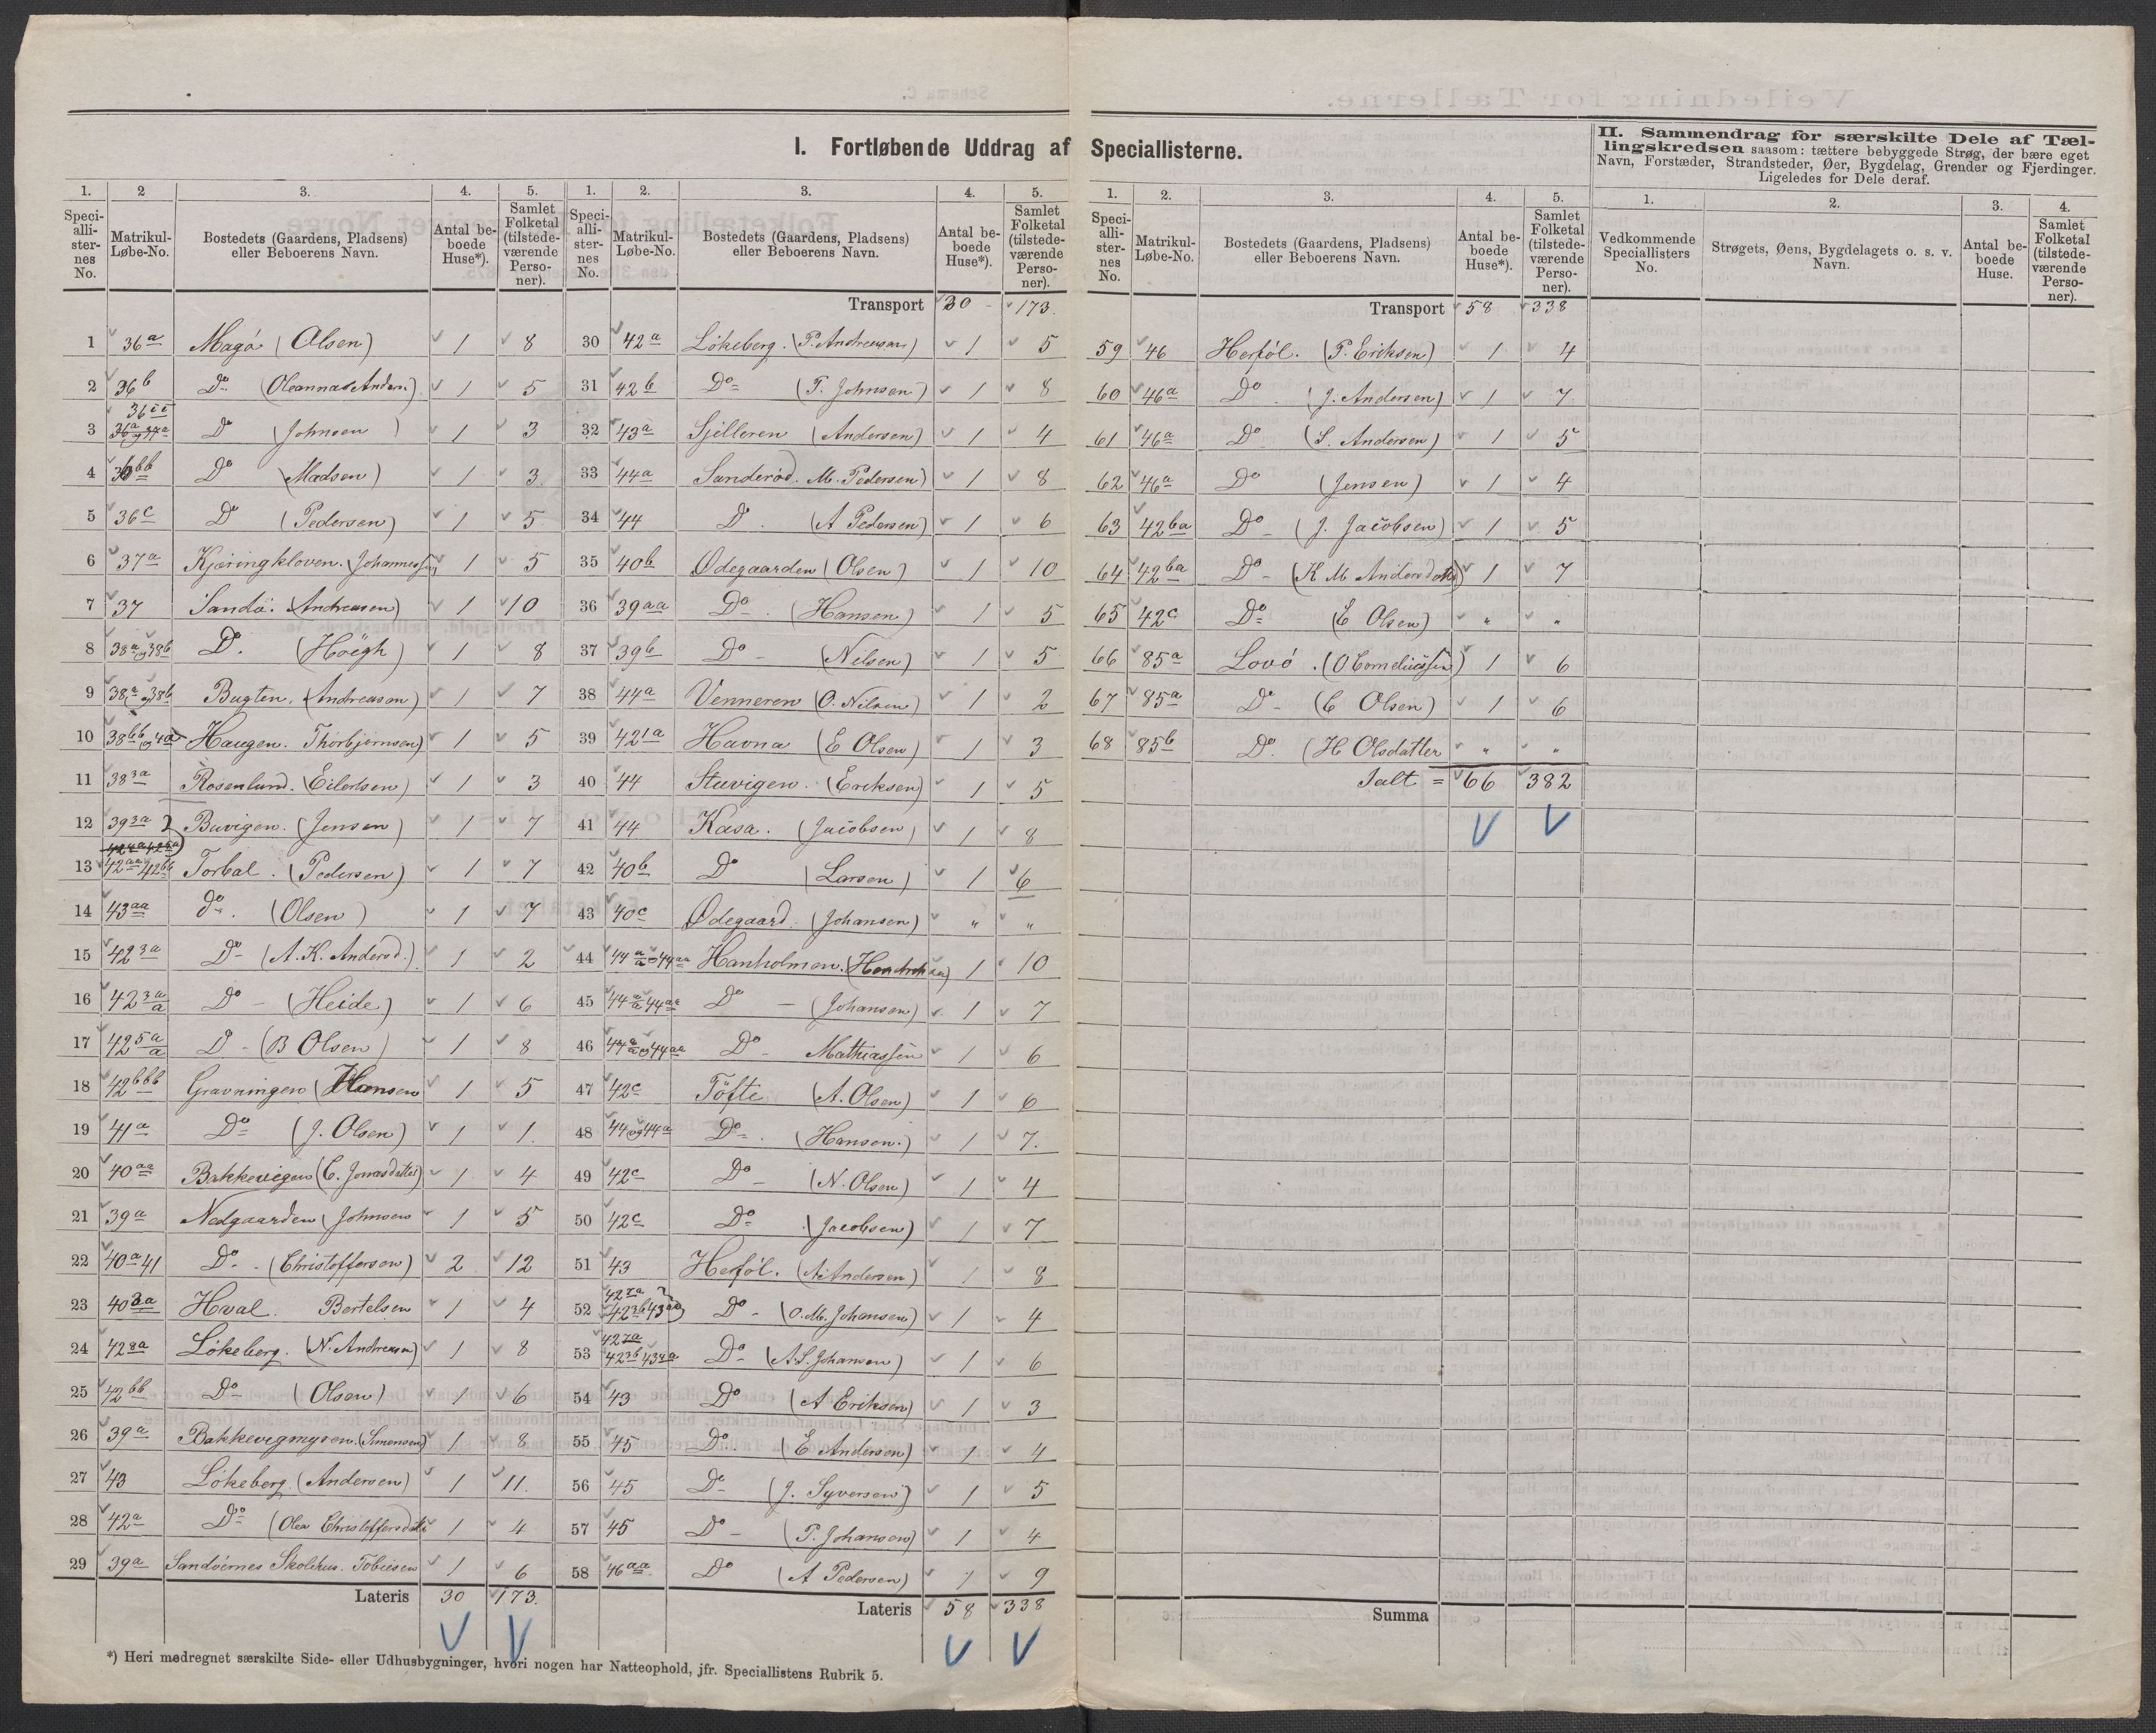 I. Fortløbende Uddrag af Speciallisterne.
II. Sammendrag for særskilte Dele af Tæl-
lingskredsen saasom: tættere bebyggede Strøg, der bære eget
Navn, Forstæder, Strandsteder, Øer, Bygdelag, Grender og Fjerdinger.
Ligeledes for Dele deraf.
1. 2 3. 4. 5.
Speci-
alli-
ster-
nes
No.
Matrikul-
Løbe-No.
Bostedets (Gaardens, Pladsens)
eller Beboerens Navn.
Antal be-
boede
Huse*).
Samlet
Folketal
(tilstede-
værende
Perso-
ner).
1 36a Magö (Olsen) 1 8
2 36b Do (Oleanna Anders.) 1 5
3 Do (Johnsen) 1 3
4 36bb Do (Madsen) 1 3
5 36c Do (Pedersen) 1 5
6 37a Kjæringkloven. (Johannessen) 1 5
7 37 Sandö. (Andreasen) 1 10
8 38a og 38b Do. (Höegh) 1 8
9 38a og 38b Bugten. (Andreasen) 1 7
10 Haugen. Thorbjørnsen) 1 5
11 38 3a Rosenlund. (Eilertsen) 1 3
12 39 3a Buvigen. (Jensen) 1 7
13 42aa 42bb Torbal. (Pedersen) 1 7
14 43aa do. (Olsen) 1 7
15 42 3a Do (A. K. Andersd.) 1 2
16 42 3a/a Do - (Heide) 1 6
17 42 5a/a D - (B Olsen) 1 8
18 42bbb Gravningen (Hansen 1 5
19 41a Do (J. Olsen) 1 1
20 40aa Bakkevigen (C. Jonasdatter) 1 4
21 39a Nedgaarden (Johnsen 1 5
22 40a 41 Do - (Christoffersen) 2 12
23 40 3a Hval. Bertelsen 1 4
24 42 8a Lökeberg. (N. Andreasen) 1 8
25 42bb Do (Olsen) 1 6
26 39a Bakkevigmyren. (Simensen) 1 8
27 43 Lökeberg. (Andersen) 1 11
28 42a Do (Olea Christoffersdatter 1 4
29 39a Sandöernes Skolehus. Tobiesen 1 6
Lateris 30 173.
*) Heri medregnet særskilte Side- eller Udhusbygninger, hvori nogen har Natteophold, jfr. Speciallistens Rubrik 5.
1. 2. 3. 4. 5.
Speci-
alli-
ster-
nes
No.
Matrikul-
Løbe-No.
Bostedets (Gaardens, Pladsens)
eller Beboerens Navn.
Antal be-
boede
Huse*).
Samlet
Folketal
(tilstede-
værende
Perso-
ner).
Transport 30 173.
30 42a Lökeberg. (P. Andreasen) 1 5
31 42b Do (T. Johnsen) 1 8
32 43a Sjelleren (Andersen) 1 4
33 44a Sanderöd. M. Pedersen) 1 8
34 44 D. (A Pedersen) 1 6
35 40b Ödegaarden (Olsen) 1 10
36 39aa Do. (Hansen) 1 5
37 39b Do - (Nilsen) 1 5
38 44a Venneren (O. Nilsen) 1 2
39 42 1a Havna (E Olsen) 1 3
40 44 Stuvigen. (Eriksen) 1 5
41 44 Kasa. (Jacobsen) 1 8
42 40b Do (Larsen) 1 6
43 40c Ödegaard. (Johansen) " "
44 Hanholmen. 1 10
45 Do - (Johansen) 1 7
46 Do - Mathiassen 1 6
47 42c Töfte (A. Olsen) 1 6
48 44 og 44a Do. (Hansen.) 1 7.
49 42c Do (N. Olsen) 1 4
50 42c Do (Jacobsen) 1 7
51 43 Herföl. (A Andersen) 1 8
52 Do - (O. M. Johansen) 1 4
53 Do (A. S. Johansen) 1 6
54 43 Do (A Eriksen) 1 3
55 45 Do (E Andersen) 1 4
56 45 Do (J. Syversen) 1 5
57 45 Do - (P. Johansen) 1 4
58 46aa Do (A Pedersen) 1 9
Lateris 58 338
1. 2. 3. 4. 5.
Speci-
alli-
ster-
nes
No.
Matrikul-
Løbe-No.
Bostedets (Gaardens, Pladsens)
eller Beboerens Navn.
Antal be-
boede
Huse*).
Samlet
Folketal
(tilstede-
værende
Perso-
ner).
Transport 58 338
59 46 Herföl. (P. Eriksen) 1 4
60 46a Do. (J. Andersen) 1 7
61 46a Do (S. Andersen) 1 5
62 46a Do (Jensen) 1 4
63 42ba Do - (J. Jacobsen) 1 5
64 42ba Do - (K M Andersdatter) 1 7
65 42c Do (E Olsen) " "
66 85a Lovö. (O Corneliussen) 1 6
67 85a Do - (C Olsen) 1 6
68 85b Do. (H Olsdatter " "
Ialt = 66 382
Summa
1. 2. 3. 4.
Vedkommende
Speciallisters
No.
Strøgets, Øens, Bygdelagets o. s. v.
Navn.
Antal be-
boede
Huse.
Samlet
Folketal
(tilstede-
værende
Perso-
ner).